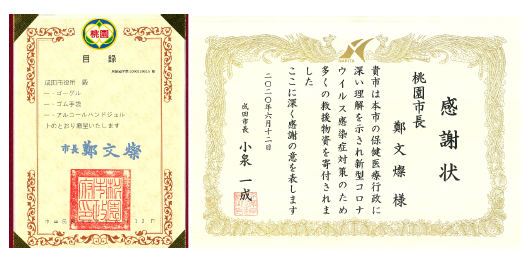 桃園
目録
成田市役所
一・ゴーグル
一・ゴム手袋
一・アルコールハンドジェル
市長 鄭文燦
NARITA
感謝状
桃園市長
鄭文燦 様
貴市は本市の保健医療行政に
深い理解を示され新型コロナ
ウイルス感染症対策のため
多くの救援物資を寄付されま
した
ここに深く感謝の意を表します
二〇二〇年六月十二日
成田市長 小泉一成